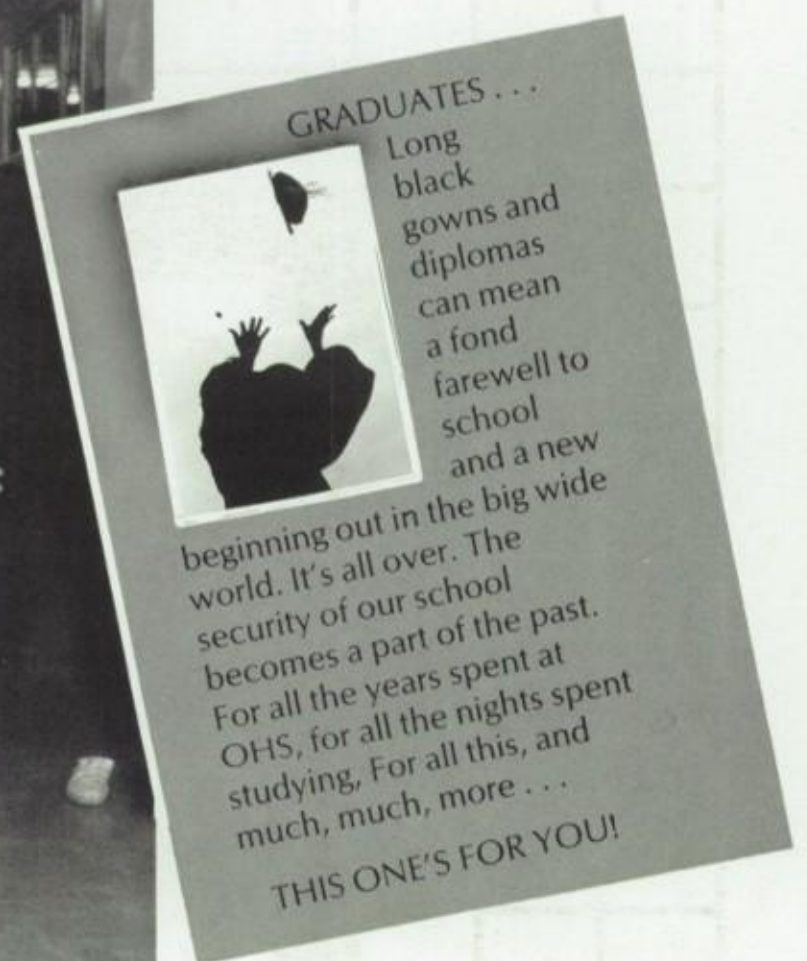 GRADUATES . . .
Long
black
gowns and
diplomas
can mean
a fond
farewell to
school
and a new
beginning out in the big wide
world. It's all over. The
security of our school
becomes a part of the past.
For all the years spent at
OHS, for all the nights spent
studying, For all this, and
much, much, more . . .
THIS ONE'S FOR YOU!